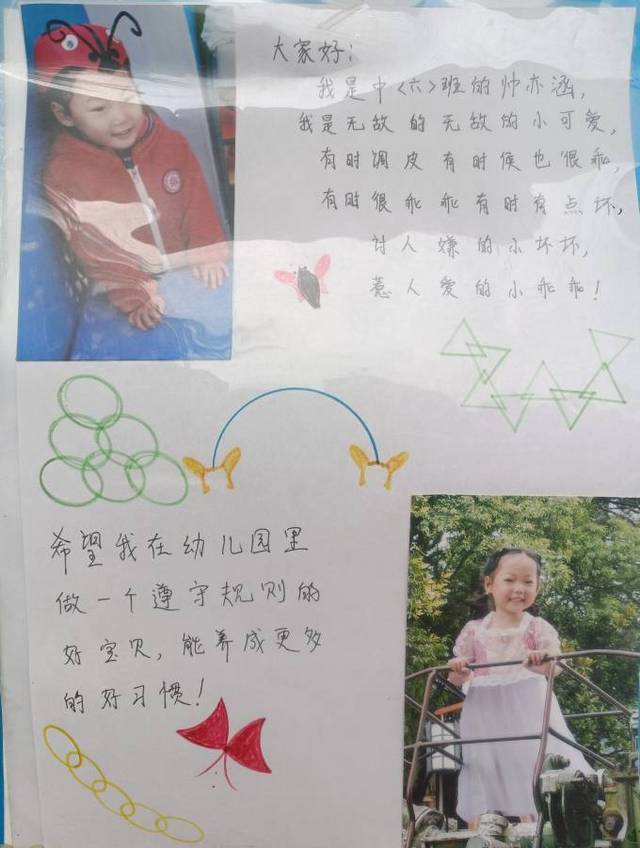 大家好：
我是中〈六〉班的帅亦涵，
我是无敌的无敌的小可爱，
有时调皮有时候也很乖，
有时很乖乖有时有点坏，
讨人嫌的小坏坏，
惹人爱的小乖乖！
希望我在幼儿园里
做一个遵守规则的
好宝贝，能养成更多
的好习惯！